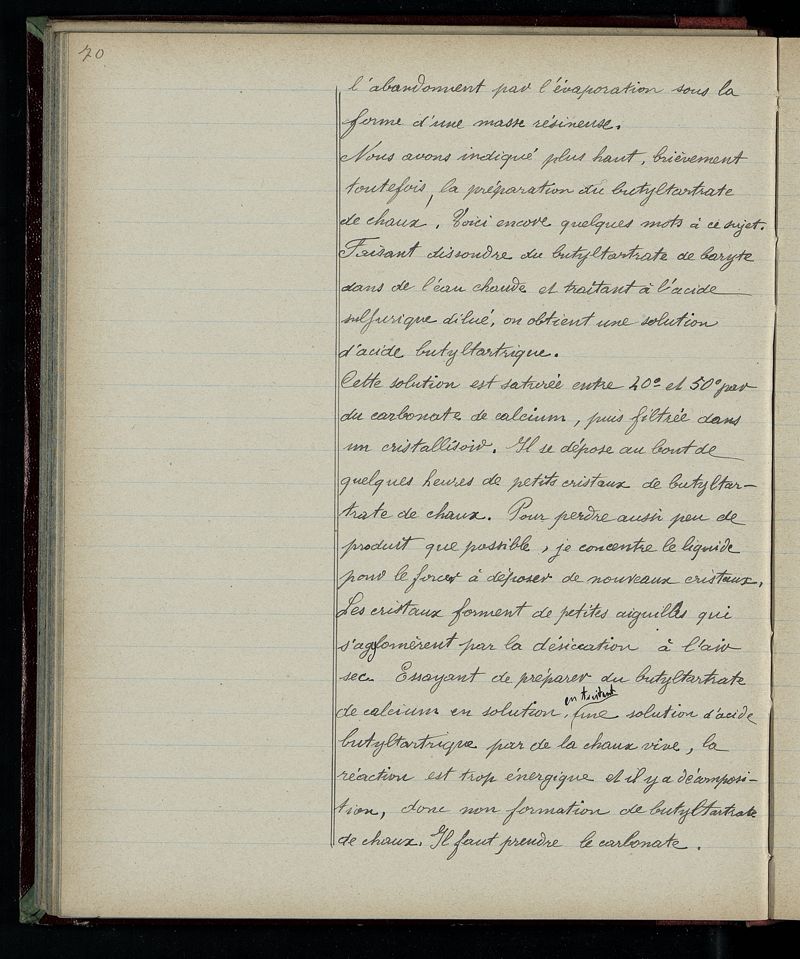 70
l'abandonnent par l'évaporation sous la
forme d'une masse résineuse.
Nous avons indiqué plus haut, brièvement
toutefois, la préparation du butyltartrate
de chaux. Voici encore quelques mots à ce sujet.
Faisant dissoudre du butyltartrate de baryte
dans de l'eau chaude et traitant à l'acide
sulfurique dilué, on obtient une solution
d'acide butyltartrique.
Cette solution est saturée entre 40° et 50° par
du carbonate de calcium, puis filtrée dans
un cristallisoir. Il se dépose au bout de
quelques heures de petits cristaux de butyltar-
trate de chaux. Pour perdre aussi peu de
produit que possible, je concentre le liquide
pour le forcer à déposer de nouveaux cristaux.
Les cristaux forment de petites aiguilles qui
s'agglomèrent par la désiccation à l'air
sec. Essayant de préparer du butyltartrate
en traitant
de calcium en solution, une solution d'acide
butyltartrique par de la chaux vive, la
réaction est trop énergique et il y a décomposi-
tion, donc non formation de butyltartrate
de chaux. Il faut prendre le carbonate.